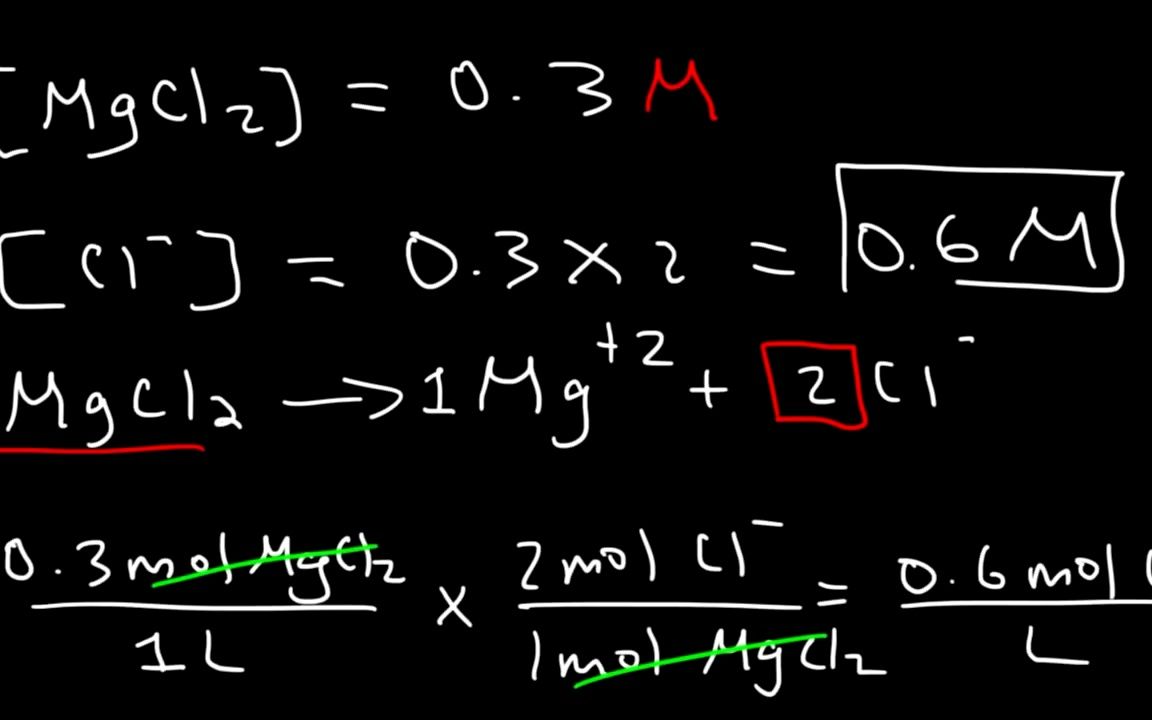 [MgCl₂] = 0.3 M
[Cl⁻] = 0.3 × 2 = 0.6 M
MgCl₂ → 1Mg⁺² + 2Cl⁻
0.3 mol MgCl₂ / 1 L × 2 mol Cl⁻ / 1 mol MgCl₂ = 0.6 mol / L